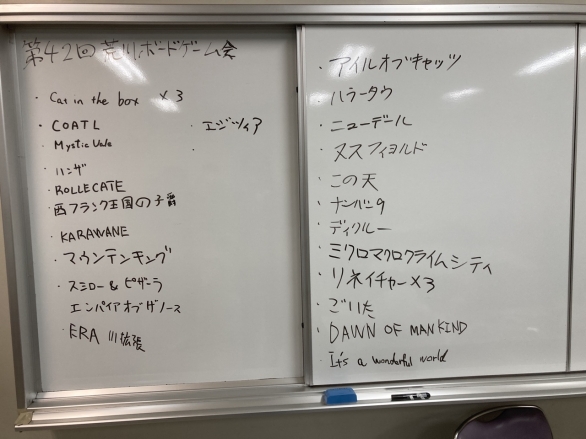 第42回荒川ボードゲーム会
・Cat in the box ×3
・COATL
・エジツィア
・Mystic Vale
・ハンザ
・ROLLECATE
西フランク王国の子爵
・KARAWANE
・マウンテンキング
・スミロー&ピザーラ
エンパイアオブザノース
・ERA 川拡張
・アイルオブキャッツ
・ハラータウ
・ニューデール
・ヌスフィヨルド
・この天
・ナンバー9
・ディクルー
・ミクロマクロクライムシティ
・リネイチャー×3
・ごいた
・DAWN OF MANKIND
・It's a wonderful world